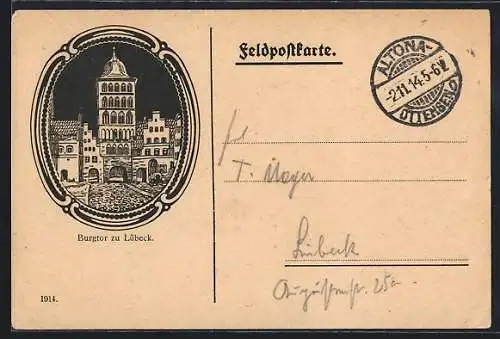 Feldpostkarte.
ALTONA-
-2.11.14.5-6N.
OTTENSEN
Burgtor zu Lübeck.
1914.
T. Mayer
Lübeck
Augustenstr. 25a